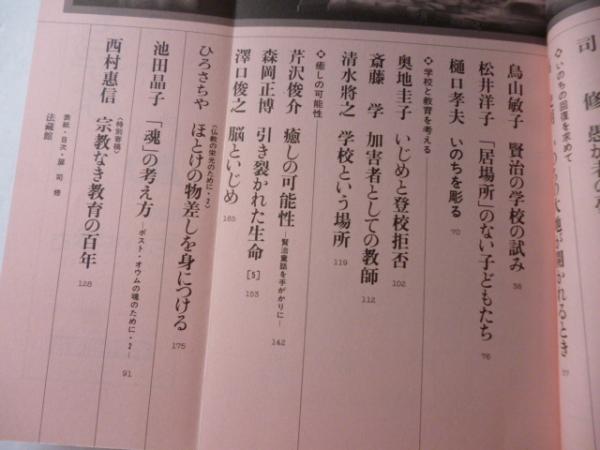 司　修　愚か者の
❖いのちの回復を求めて
開かれるとき 77
鳥山敏子　賢治の学校の試み 58
松井洋子　「居場所」のない子どもたち 76
樋口孝夫　いのちを彫る 70
❖学校と教育を考える
奥地圭子　いじめと登校拒否 102
斎藤　学　加害者としての教師 112
清水將之　学校という場所 119
❖癒しの可能性
芹沢俊介　癒しの可能性―賢治童話を手がかりに― 142
森岡正博　引き裂かれた生命［5］ 153
澤口俊之　脳といじめ 165
〈仏教の栄光のために・2〉
ひろさちや　ほとけの物差しを身につける 175
池田晶子　「魂」の考え方―ポスト・オウムの魂のために・2― 91
〈特別寄稿〉
西村惠信　宗教なき教育の百年 128
表紙・目次・扉　司　修
法藏館